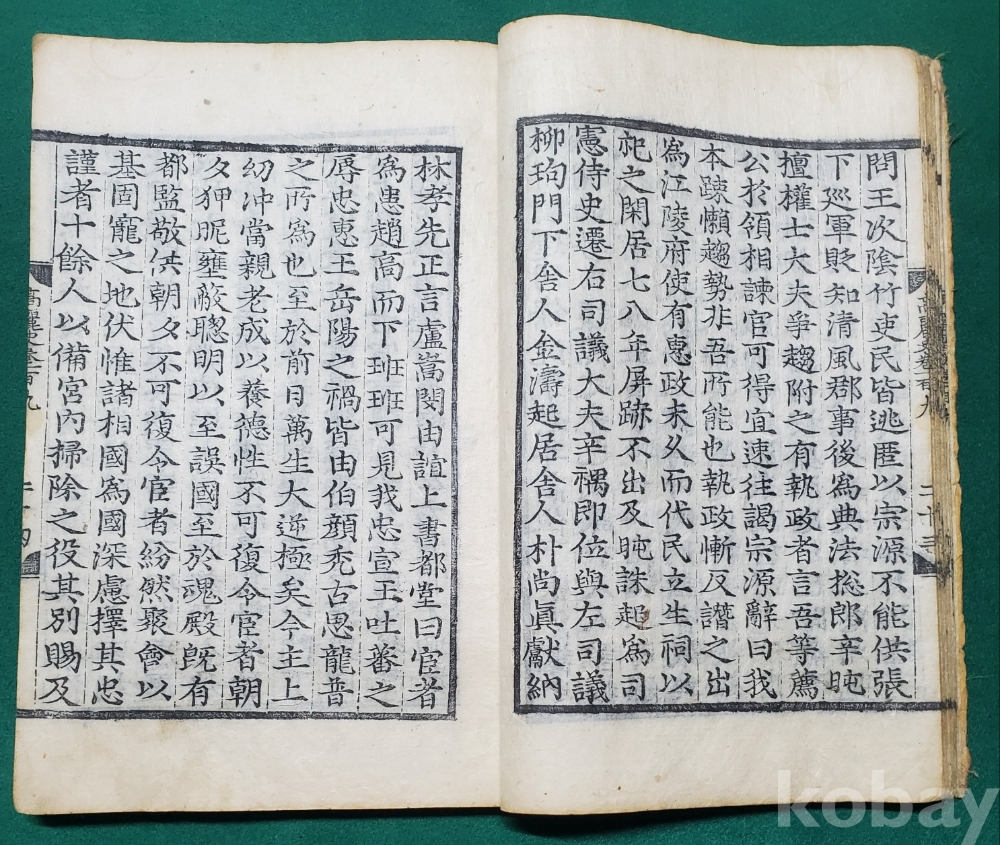 問王次陰竹吏民皆逃匿以宗源不能供張
下巡軍貶知淸風郡事後爲典法摠郎辛旽
擅權士大夫爭趨附之有執政者言吾等薦
公於領相諫官可得宜速往謁宗源辭曰我
本踈懶趨勢非吾所能也執政慚反譖之出
爲江陵府使有惠政未久而代民立生祠以
祀之閑居七八年屏跡不出及旽誅起爲司
憲侍史遷右司議大夫辛禑即位與左司議
柳珣門下舍人金濤起居舍人朴尙眞獻納
林孝先正言盧嵩閔由誼上書都堂曰宦者
爲患趙高而下班班可見我忠宣王吐蕃之
辱忠惠王岳陽之禍皆由伯顔禿古思龍普
之所爲也至於前日萬生大逆極矣今主上
幼冲當親老成以養德性不可復令宦者朝
夕狎昵壅蔽聰明以至誤國至於魂殿旣有
都監敬供朝夕不可復令宦者紛然聚會以
基固寵之地伏惟諸相國爲國深慮擇其忠
謹者十餘人以備宮內掃除之役其別賜及
高麗史卷百九
二十四
kobay